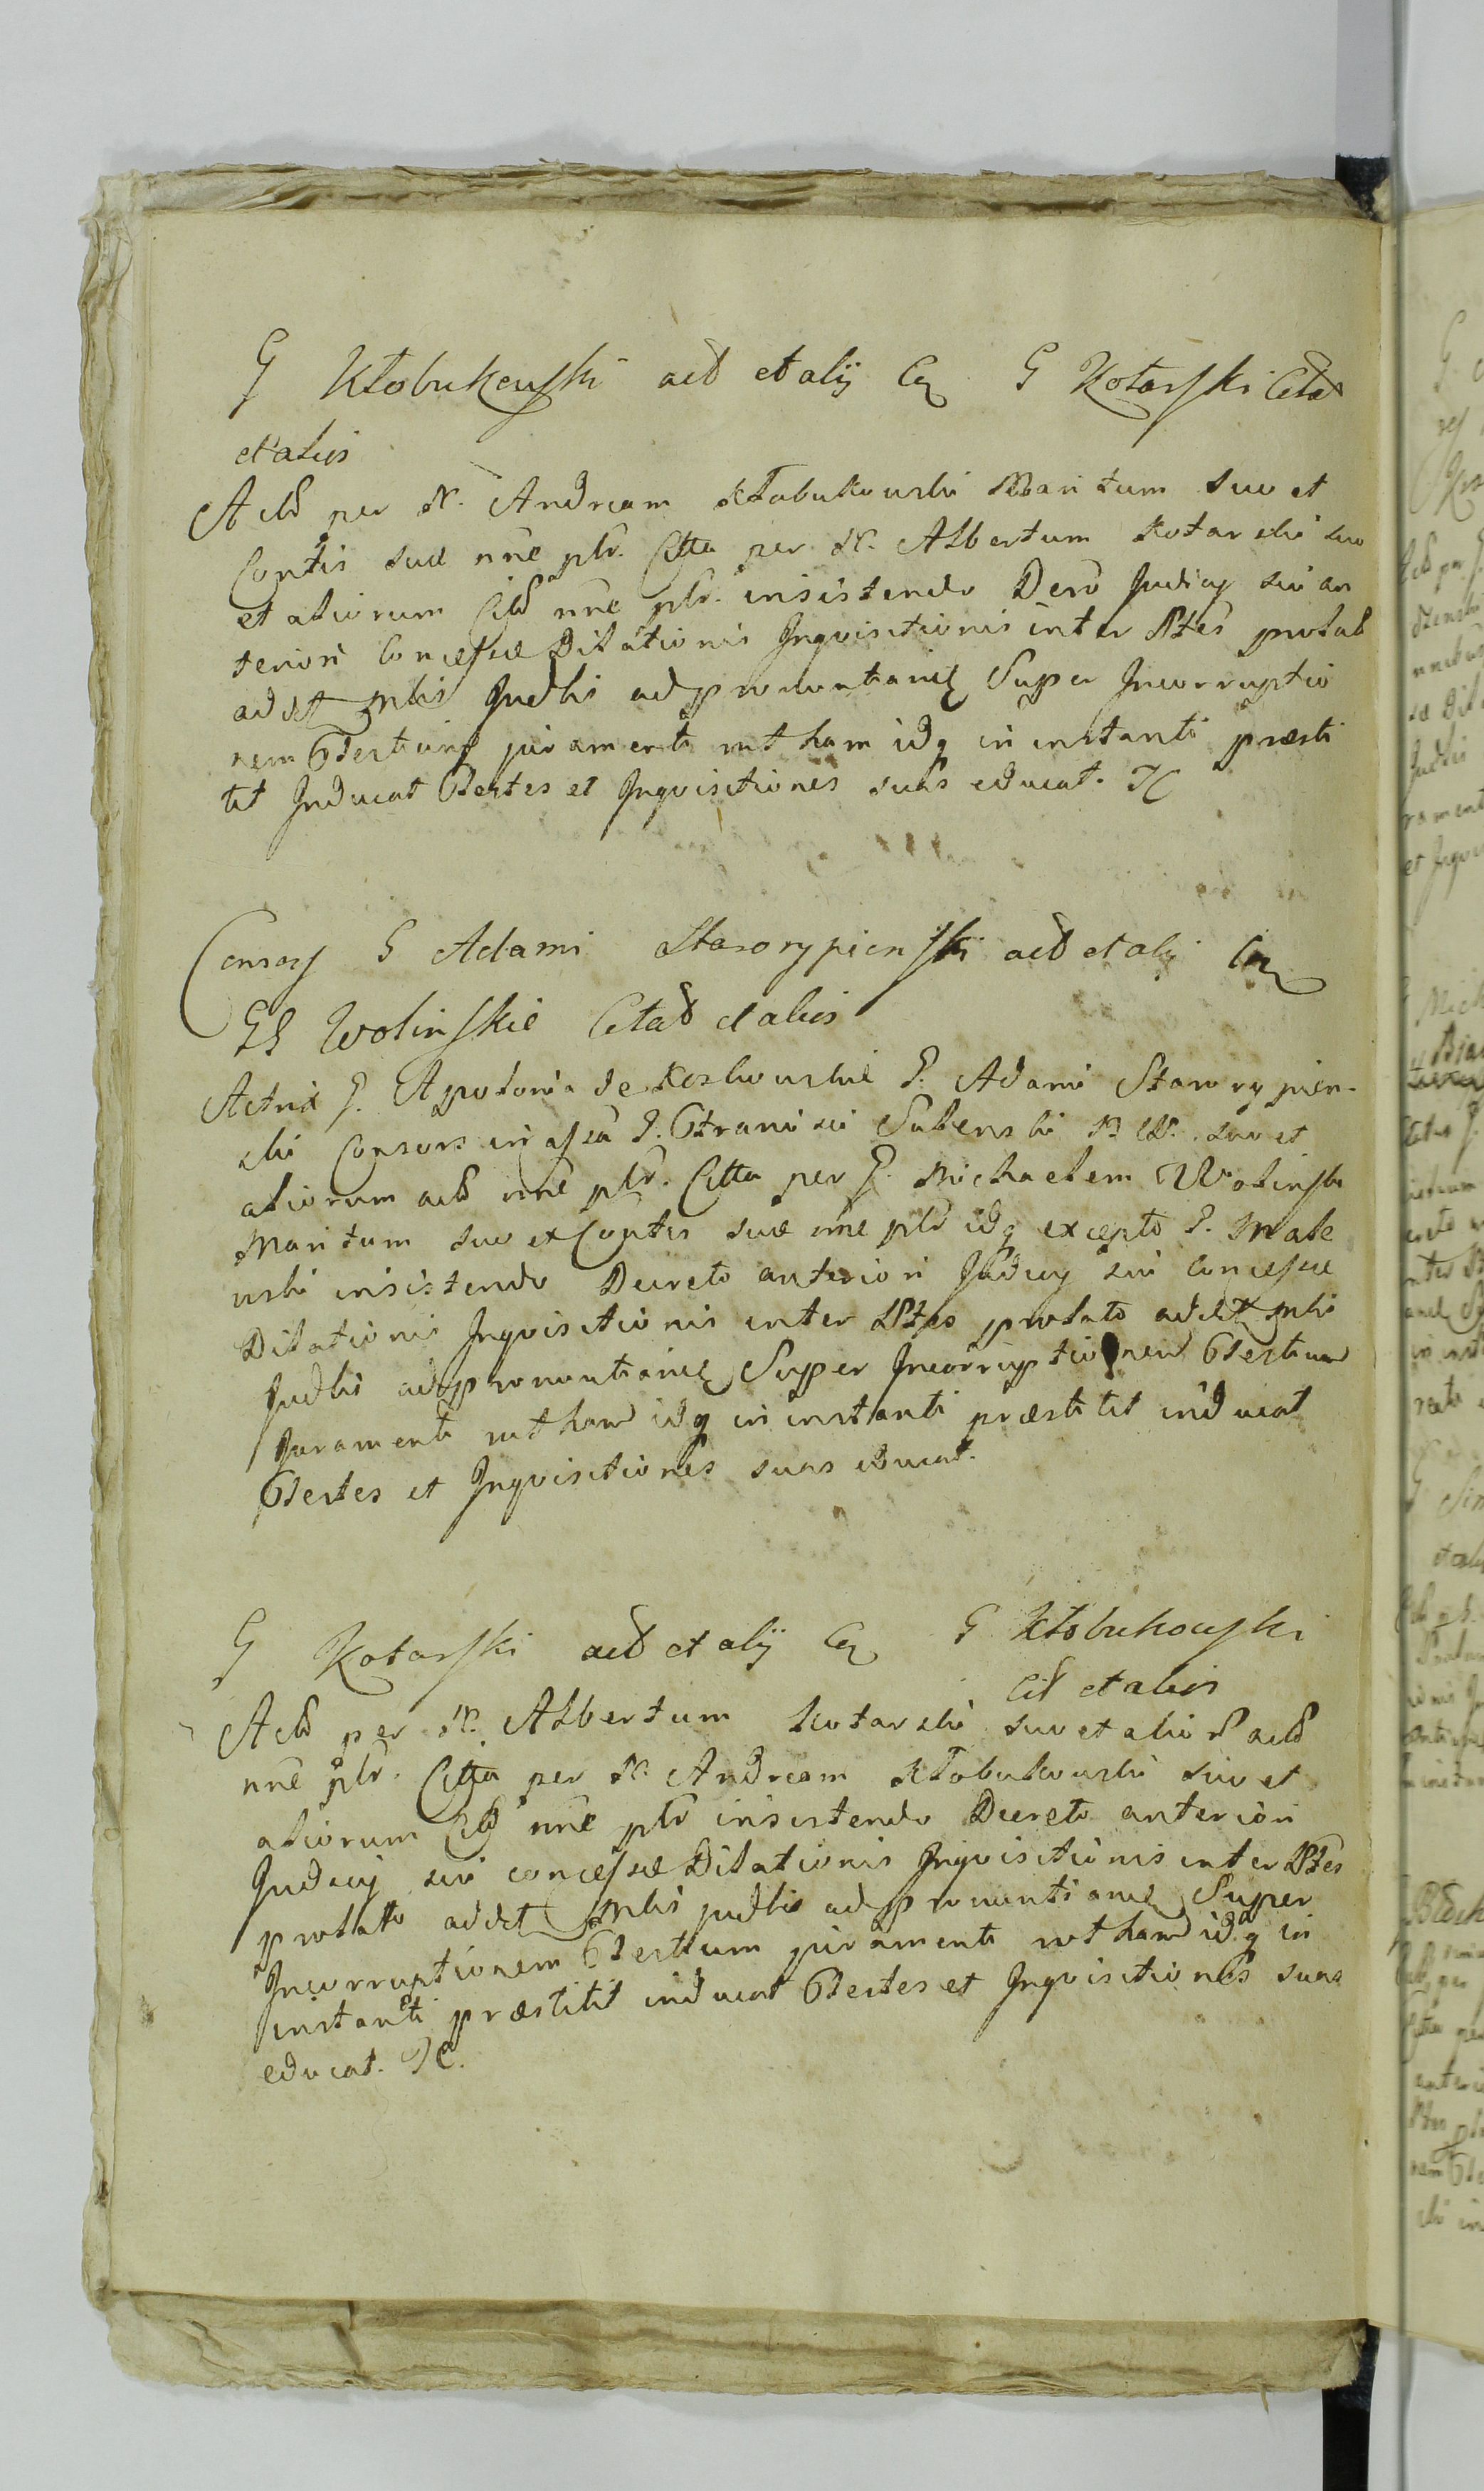 G Kłobukowski act et alij Cq G Kotarski Citat
et alios
Actt per N. Andream Kłobukowski Maritum suo et
Contis suæ nne plr. Citta per N. Albertum Kotarski suo
et aliorum Citt nne plr. insistendo Dero Judicy sui an
teriori Concessæ Dilationis Inqvisitionis inter Ptes prolat
addt Mbis Judlis ad pronuntianq Super Incorruptio
nem Testium juramenti rotham idq in instanti præsti
tit Inducat Testes et Inqvisitiones suas educat.
Consors G Adami Starorypienski act et alij Cq
GG Wolinskie Citat et alios
Actrix G. Apolonia de Kozlowskie G. Adami Starorypien-
ski Consors in assa G. Francisci Sulenski suo et
aliorum act nne plr. Citta per G. Michaelem Wolinski
Maritum suo et Contis suæ nne plr idq excepto G. Make
wski insistendo Decreto anteriori Judicy sui Concessæ
Dilationis Inqvisitionis inter Ptes prolato addt Mbis
Judlis ad pronuntianq Super Incorruptionem Testium
Juramenti rotham idq in instanti præstitit inducat
Testes et Inqvisitiones suas educat.
G Kotarski act et alij Cq G Kłobukowski
Cit et alios
Actt per N. Albertum Kotarski suo et alior actt
nne plr. Citta per N. Andream Kłobukowski suo et
aliorum Citt nne plr insistendo Decreto anteriori
Judicij sui concessæ Dilationis Inqvisitionis inter Ptes
prolato addt Mbis judlis ad pronuntianq Super
Incorruptionem Testium juramenti rotham idq in
instanti præstitit inducat Testes et Inqvisitiones suas
educat.